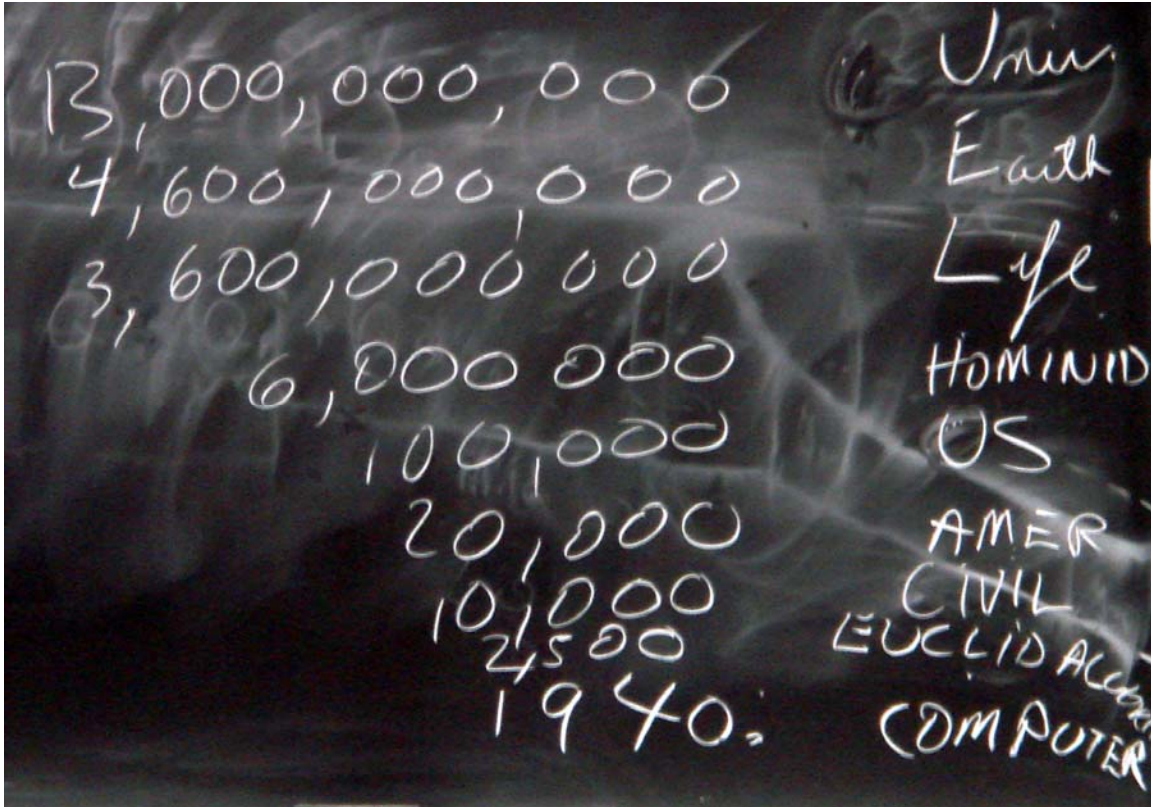 13,000,000,000 Univ.
4,600,000,000 Earth
3,600,000 000 Life
6,000 000 HOMINID
100,000 OS
20,000 AMER
10,000 CIVIL
2,500 EUCLID
1940. COMPUTER